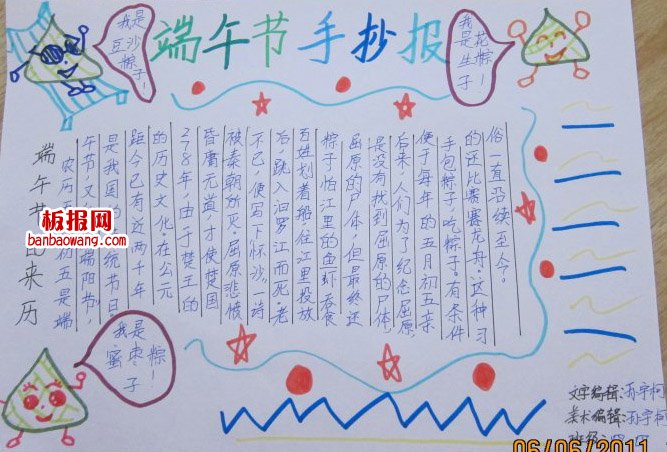 端午节手抄报
我是
豆沙
粽子!
我是花
生粽
子!
端午节 来历
农历五 初五是端
午节又 端阳节,
是我国 统节日
距今已有近两千年
的历史文化在公元
278年,由于楚王的
昏庸无道,才使楚国
被秦朝所灭。屈原悲愤
不已,便写下怀沙一诗
后,跳入汨罗江而死。老
百姓划着船往江里投放
粽子怕江里的鱼虾吞食
屈原的尸体,但最终还
是没有找到屈原的尸体,
后来人们为了纪念屈原
便于每年的五月初五亲
手包粽子,吃粽子。有条件
的还比赛赛龙舟。这种习
俗一直沿续至今。
板报网
banbaowang.com
我是
蜜枣
粽子!
文字编辑:孙宇柯
美术编辑:孙宇柯
班级:四
06/06/2011